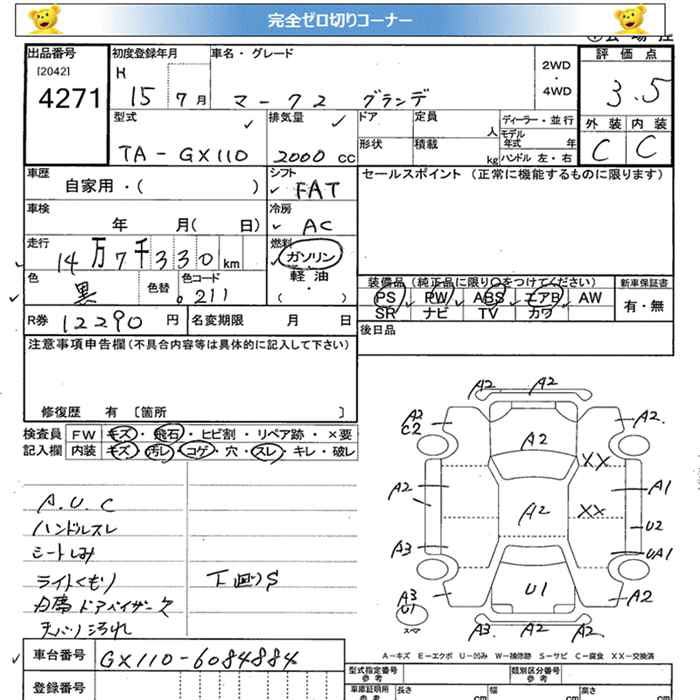 完全ゼロ切りコーナー
出品番号
[2042]
4271
初度登録年月
H
15 7月
車名・グレード
マークⅡ グランデ
2WD
・
4WD
評価点
3.5
外装 内装
C C
型式
TA-GX110
排気量
2000 cc
ドア
定員
人
形状
積載
kg
ディーラー・並行
モデル
年式 年
ハンドル 左・右
車歴
自家用・( )
シフト
FAT
セールスポイント (正常に機能するものに限ります)
車検
年 月( 日)
冷房
AC
走行
14万7千330 km
燃料
ガソリン
軽油
・
( )
色
黒
色替
色コード
211
装備品 (純正品に限り○をつけてください)
PS PW ABS エアB AW
SR ナビ TV カワ
新車保証書
有・無
R券 12290 円
名変期限 月 日
後日品
注意事項申告欄(不具合内容等は具体的に記入して下さい)
修復歴 有 〔箇所 〕
検査員
記入欄
FW キズ・飛石・ヒビ割・リペア跡・×要
内装 キズ・汚レ・コゲ・穴・スレ・キレ・破レ
A.U.C
ハンドルスレ
シートしみ
ライトくもり
下回りS
天バリ汚れ
A2 A2
A2
C2
A2
A2
XX
A2
A2
XX
A1
U2
A3
UA1
U1
A3
U1
スペア
A2
A3 A2 A2
A-キズ E-エクボ U-凹み W-補修跡 S-サビ C-腐食 XX-交換済
車台番号
GX110-6084884
登録番号
型式指定番号
参考
類別区分番号
参考
車庫証明用
参考
長さ
cm
幅
cm
高さ
cm